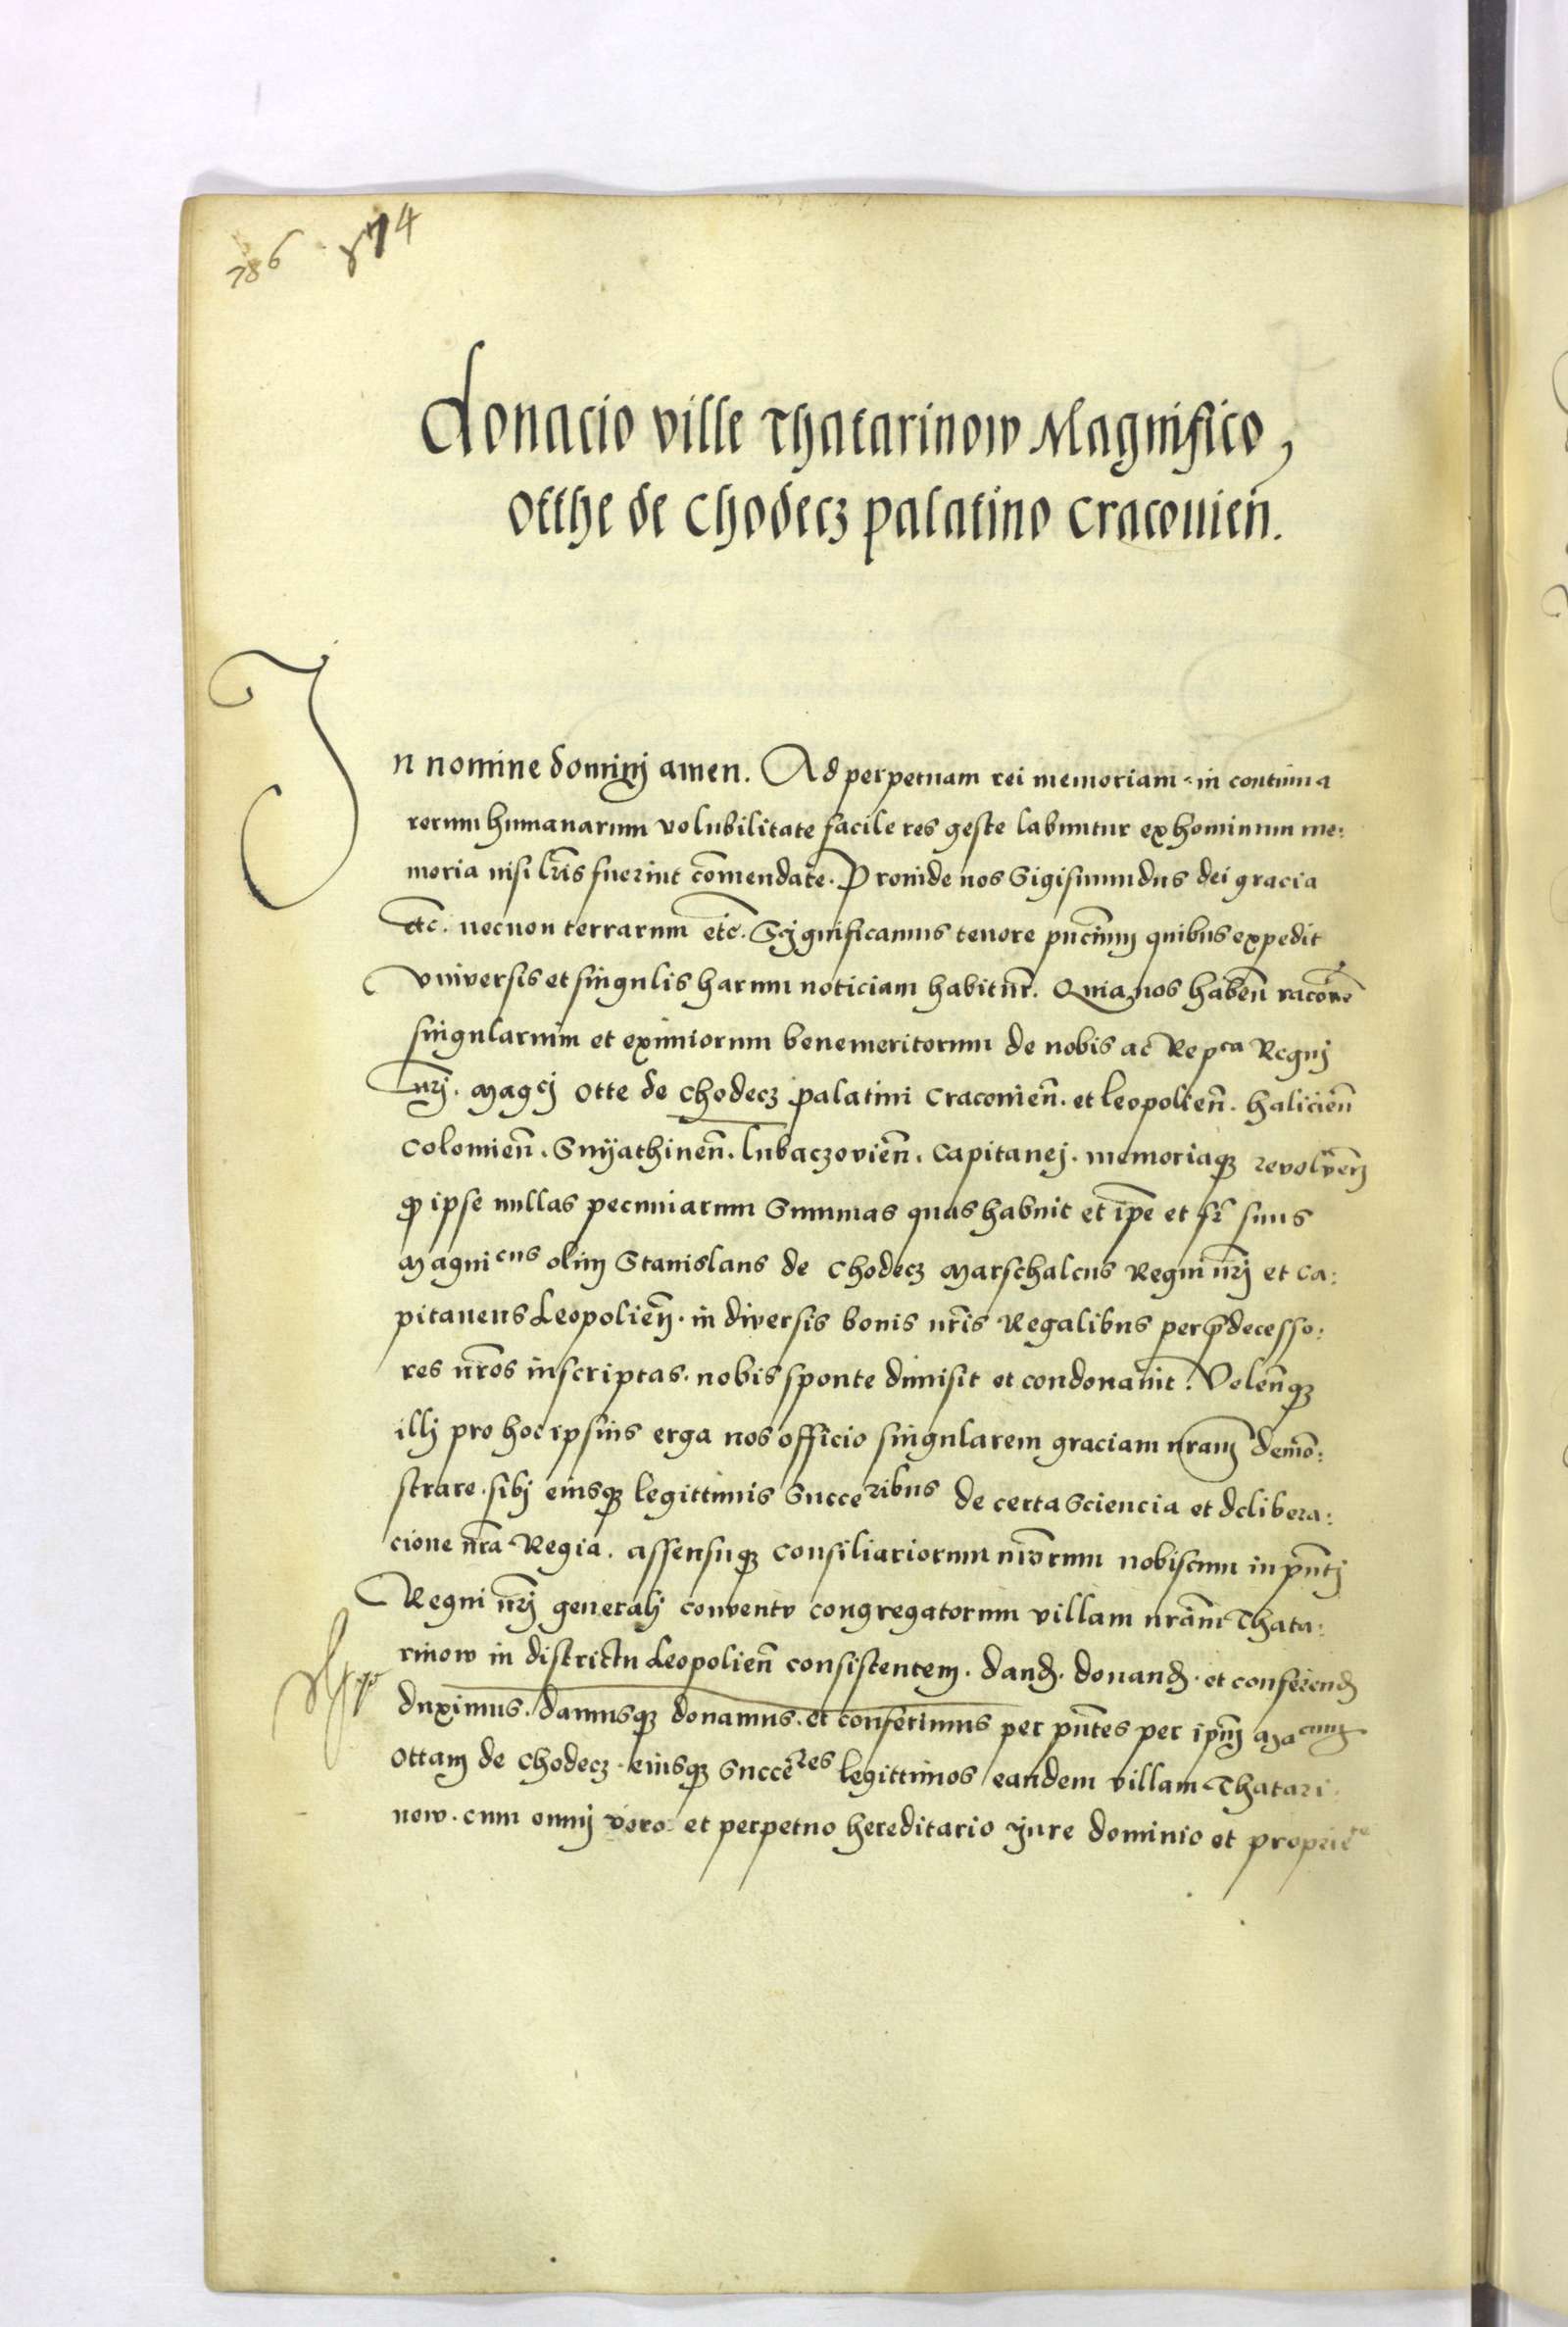 786 874
Donacio ville Thatarinow Magnifico,
Otthe de Chodecz palatino Cracouień.
In nomine dominj amen. Ad perpetuam rei memoriam in continua
rerum humanarum volubilitate facile res geste labuntur ex hominum me:
moria nisi lr̃is fuerint com̄endate. Proinde nos Sigismundus dei gracia
etc̃. necnon terrarum etc̃. Significamus tenore pñcium quibus expedit
vniversis et singulis harum noticiam habitur̃. Quia nos habeñ racõne
singularium et eximiorum benemeritorum de nobis ac Repca Regnj
nr̃j. Magcj Otte de Chodecz palatini Cracouieñ. et Leopolieñ. Halicieñ
Colomieñ. Snyathineñ. Lubaczovieñ. Capitanej. memoriaqꝫ revolveñ
qꝫ ipse nullas pecuniarum Summas quas habuit et ip̃e et fr̃ suus
Magnicus olim Stanislaus de Chodecz Marschalcus Regni nr̃j et Ca:
pitaneus Leopolieñ. in diversis bonis nr̃is Regalibus per p̃decesso:
res nr̃os inscriptas. nobis sponte dimisit et condonavit. Voleñqꝫ
illj pro hoc ipsius erga nos officio singularem graciam nr̃am demõ:
strare. sibj eiusqꝫ legittimis Succeribus de certa Sciencia et delibera:
cione nr̃a Regia. assensuqꝫ Consiliariorum nr̃orum nobiscum in pñtj
Regni nr̃j generalj conventv congregatorum villam nr̃am Thata:
rinow in districtu Leopolieñ consistentem. dand̃. donand̃. et conferend̃
duximus. damusqꝫ donamus. et conferimus per pñtes per ip̃m Macum
Ottam de Chodecz. eiusqꝫ Succẽres legittimos eandem villam Thatari:
now. cum omnj vero et perpetuo hereditario jure dominio et propriete